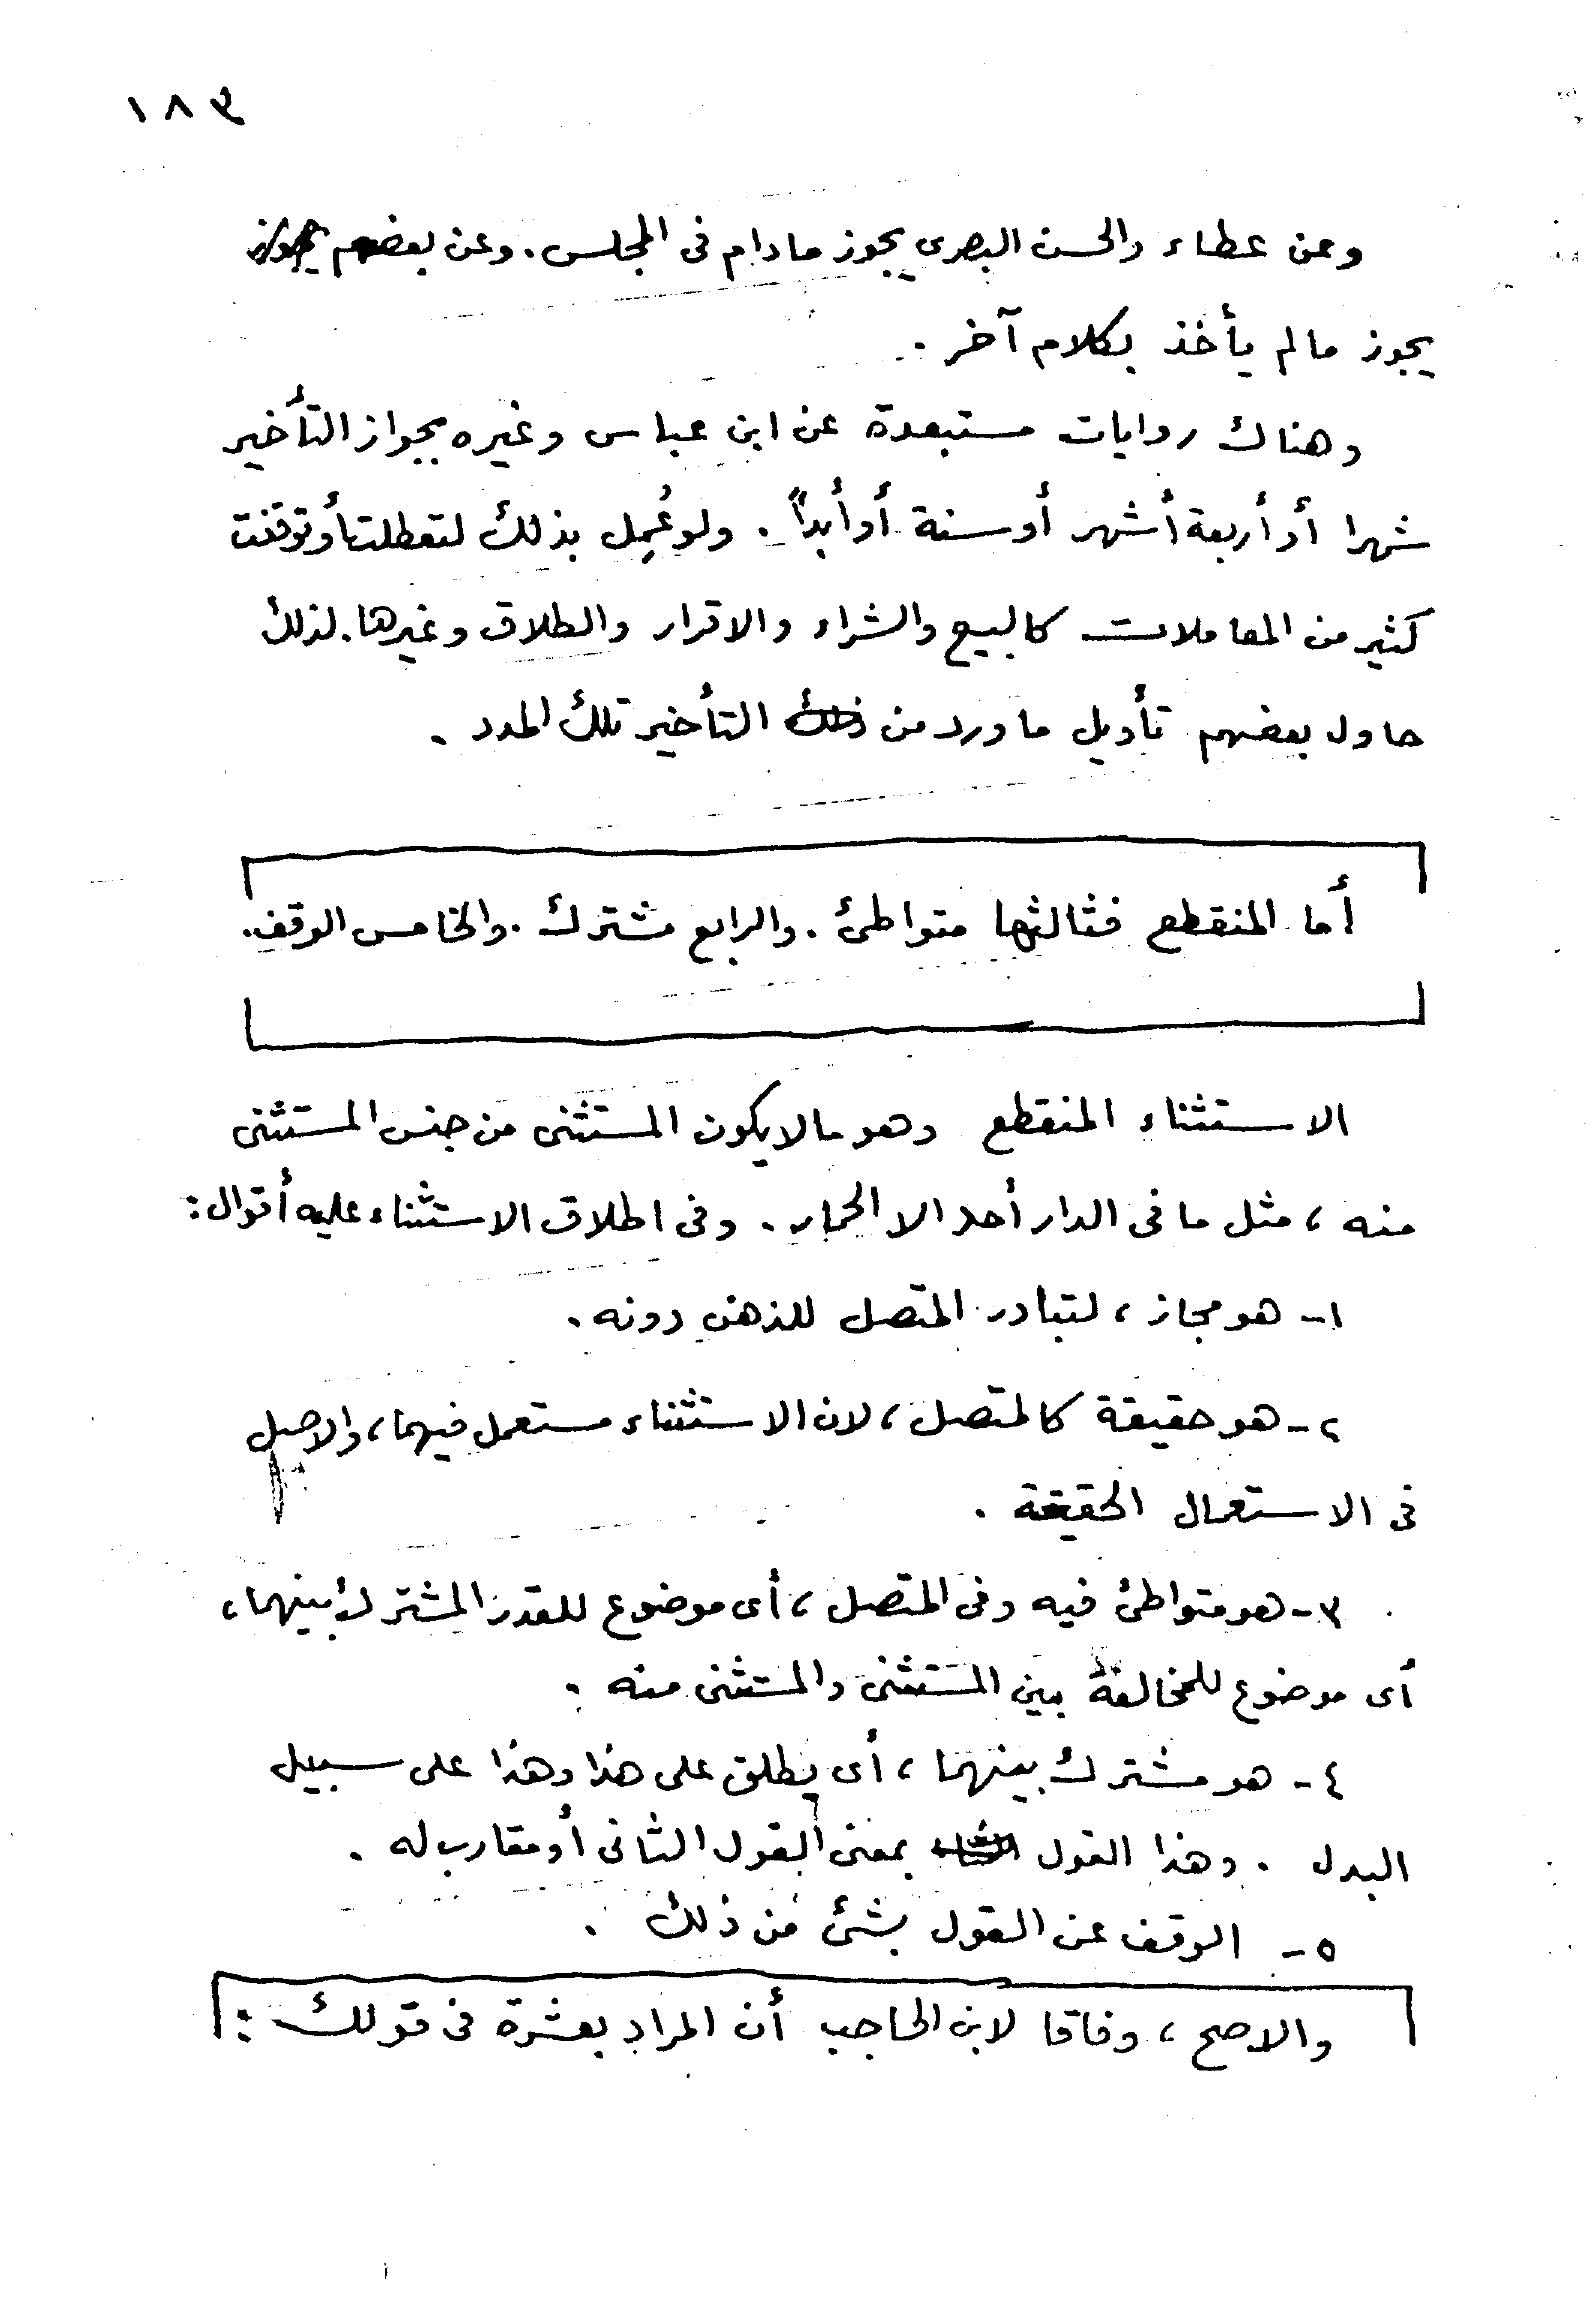 ١٨٣
وعن عطاء والحسن البصرى يجوز مادام فى المجلس. وعن بعضهم
يجوز مالم يأخذ بكلام آخر .
وهناك روايات مستبعدة عن ابن عباس وغيره بجواز التأخير
شهرا أو أربعة أشهر أو سنة أو أبداً . ولو عُمِل بذلك لتعطلت أو توقفت
كثير من المعاملات كالبيع والشراء والاقرار والطلاق وغيرها. لذلك
حاول بعضهم تأويل ما ورد من التأخير تلك المدد .
أما المنقطع فثالثها متواطئ . والرابع مشترك . والخامس الوقف.
الاستثناء المنقطع وهو مالا يكون المستثنى من جنس المستثنى
منه ، مثل ما فى الدار أحد الا الحمار . وفى اطلاق الاستثناء عليه أقوال :
١- هو مجاز ، لتبادر المتصل للذهن دونه .
٢- هو حقيقة كالمتصل ، لان الاستثناء مستعمل فيهما ، والاصل
فى الاستعمال الحقيقة .
٣- هو متواطئ فيه وفى المتصل ، أى موضوع للقدر المشترك بينهما ،
أى موضوع للمخالفة بين المستثنى والمستثنى منه .
٤- هو مشترك بينهما ، أى يطلق على هذا وهذا على سبيل
البدل . وهذا القول بمعنى القول الثانى أو مقارب له .
٥- الوقف عن القول بشئ من ذلك .
والاصح ، وفاقا لابن الحاجب أن المراد بعشرة فى قولك :